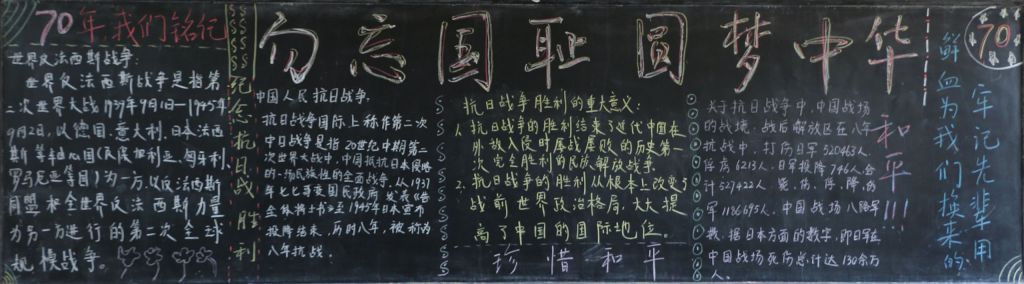 70年,我们铭记
世界反法西斯战争:
世界反法西斯战争是指第
二次世界大战1939年9月1日—1945年
9月2日,以德国,意大利,日本法西
斯等轴心国(及保加利亚,匈牙利,
罗马尼亚等国)为一方,以反法西斯
同盟和全世界反法西斯力量
为另一方进行的第二次全球
规模战争。
纪念抗日战胜利
勿忘国耻圆梦中华
中国人民抗日战争.
抗日战争国际上称作第二次
中日战争是指20世纪中期第二
次世界大战中,中国抵抗日本侵略
的一场民族性的全面战争,从1937
年七七事变国民政府发表《告
全体将士书》至1945年日本宣布
投降结束,历时八年,被称为
八年抗战。
抗日战争胜利的重大意义:
1.抗日战争的胜利结束了近代中国在
外敌入侵时屡战屡败的历史第一
次完全胜利的民族解放战争
2.抗日战争的胜利从根本上改变了
战前世界政治格局,大大提
高了中国的国际地位。
珍惜和平
关于抗日战争中,中国战场
的战绩,战后解放区在八年
抗战中,打伤日军520463人.
俘虏6213人.日军投降746人.合
计527422人 毙,伤,俘,降,伪
军1186695人.中国战场八路军
数,据日本方面的数字,即日军在
中国战场死伤总计达130余万
人。
和平!!!
70
牢记先辈用
鲜血为我们换来的